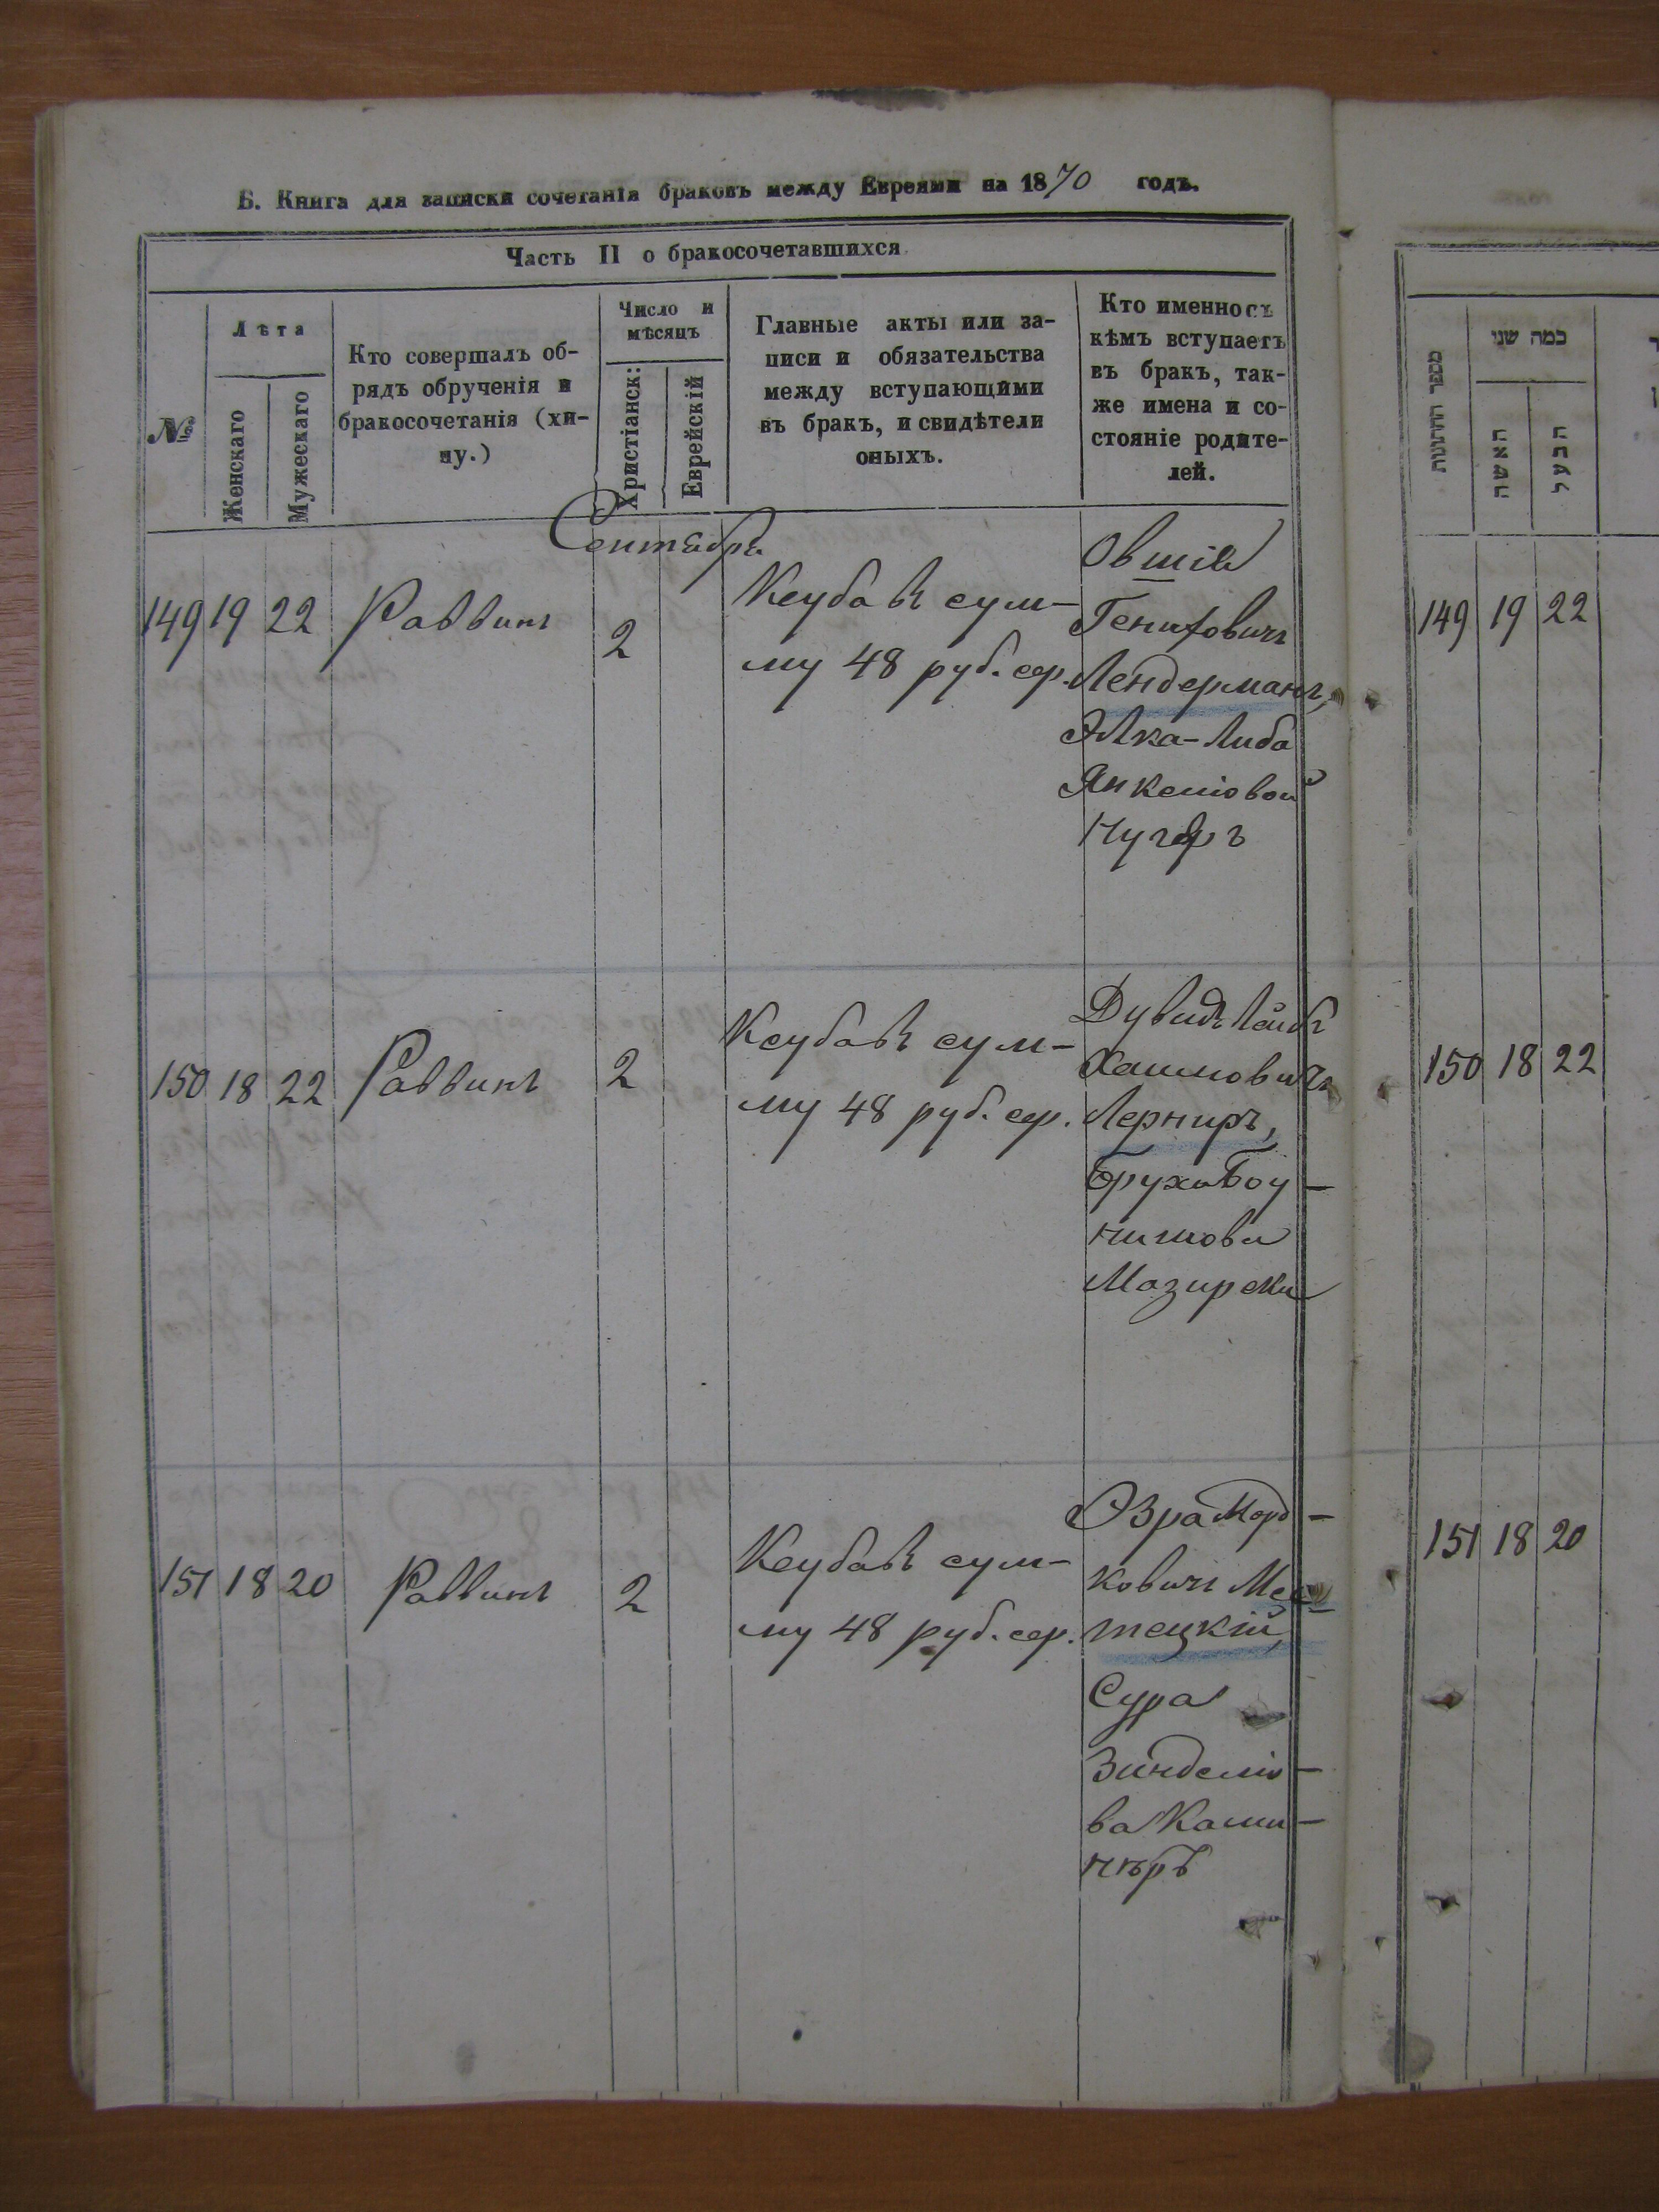 Б. Книга для записки сочетанія браковъ между Евреями на 1870 годъ.
Часть II о бракосочетавшихся
№
Лѣта
Женскаго
Мужескаго
Кто совершалъ об-
рядъ обрученія и
бракосочетанія (хи-
пу.)
Число и
мѣсяцъ
Христіанск:
Еврейскій
Главные акты или за-
писи и обязательства
между вступающими
въ бракъ, и свидѣтели
оныхъ.
Кто именно съ
кѣмъ вступаетъ
въ бракъ, так-
же имена и со-
стояніе родите-
лей.
Сентября
149 19 22 Раввинъ 2
Ксубаѣ сум-
му 48 руб. сер.
Овшія
Лендерманъ,
Элка-Либа
Янкеліовой
150 18 22 Раввинъ 2
Ксубаѣ сум-
му 48 руб. сер.
Дувидъ Лейбъ
Хаимовичъ
Лерниръ,
Бруха Боу-
Мазирски
151 18 20 Раввинъ 2
Ксубаѣ сум-
му 48 руб. сер.
Эзра Морд-
ковичъ Мес-
тецкій,
Сура
Зинделіо-
ва Ками-
нѣръ
מספר החתונות
כמה שני
האשה
הבעל
149 19 22
150 18 22
151 18 20